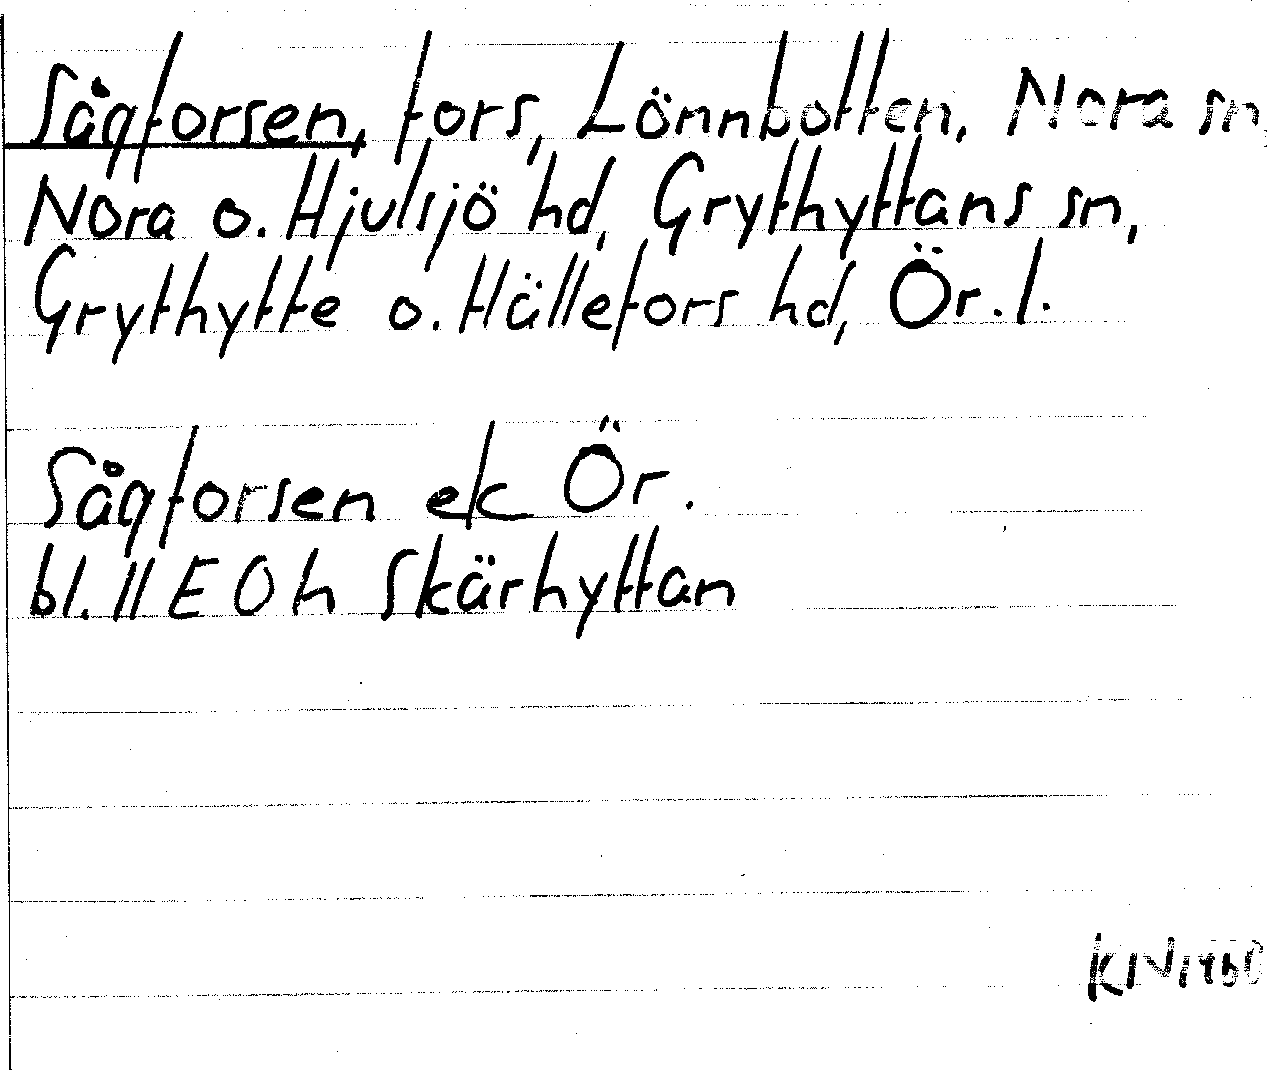 Sågforsen, fors, Lönnbotten, Nora sn,
Nora o. Hjulsjö hd, Grythyttans sn,
Grythytte o. Hällefors hd, Ör. l.
Sågforsen ek Ör.
bl. 11 E 0 h Skärhyttan